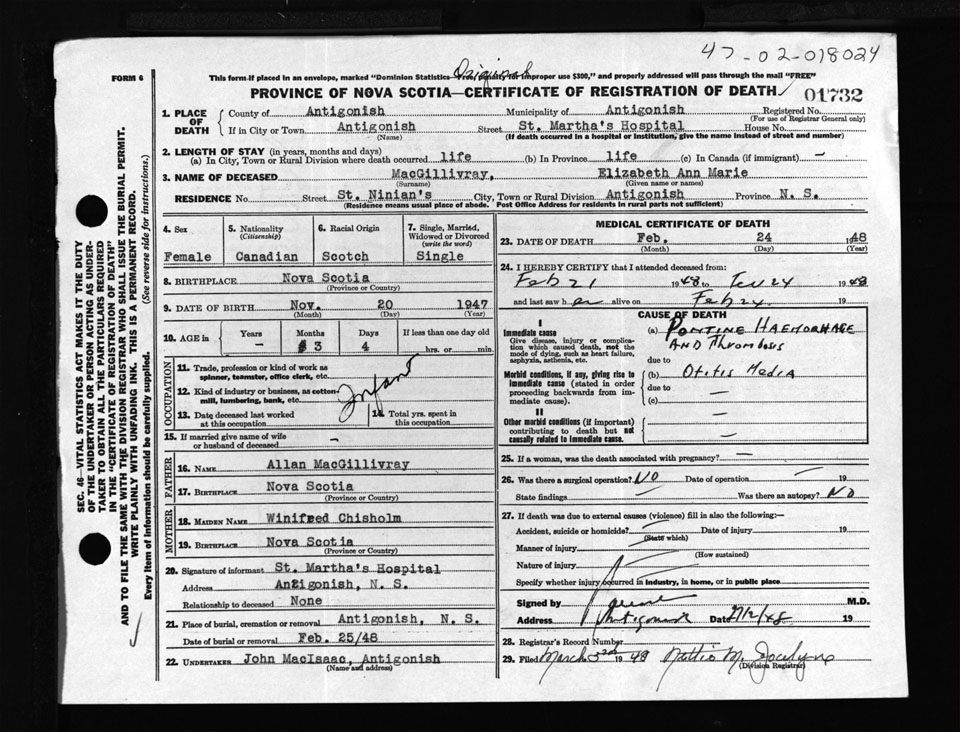 47-02-018024
Original
FORM 6
This form if placed in an envelope, marked "Dominion Statistics—Free, penalty for improper use $300," and properly addressed will pass through the mail "FREE"
PROVINCE OF NOVA SCOTIA—CERTIFICATE OF REGISTRATION OF DEATH
01732
1. PLACE OF DEATH
County of Antigonish Municipality of Antigonish Registered No.
(For use of Registrar General only)
If in City or Town Antigonish Street St. Martha's Hospital House No.
(Name) (If death occurred in a hospital or institution, give the name instead of street and number)
2. LENGTH OF STAY (in years, months and days)
(a) In City, Town or Rural Division where death occurred life (b) In Province life (c) In Canada (if immigrant) —
3. NAME OF DECEASED MacGillivray, Elizabeth Ann Marie
(Surname) (Given name or names)
RESIDENCE No. Street St. Ninian's City, Town or Rural Division Antigonish Province N. S.
(Residence means usual place of abode. Post Office Address for residents in rural parts not sufficient)
4. Sex
Female
5. Nationality
(Citizenship)
Canadian
6. Racial Origin
Scotch
7. Single, Married, Widowed or Divorced
(write the word)
Single
8. BIRTHPLACE Nova Scotia
(Province or Country)
9. DATE OF BIRTH Nov. 20 1947
(Month) (Day) (Year)
10. AGE in
Years Months Days If less than one day old
- 3 4 hrs. or min.
OCCUPATION
11. Trade, profession or kind of work as spinner, teamster, office clerk, etc.
12. Kind of industry or business, as cotton mill, lumbering, bank, etc.
Infant
13. Date deceased last worked at this occupation
14. Total yrs. spent in this occupation
15. If married give name of wife or husband of deceased -
FATHER
16. NAME Allan MacGillivray
17. BIRTHPLACE Nova Scotia
(Province or Country)
MOTHER
18. MAIDEN NAME Winifred Chisholm
19. BIRTHPLACE Nova Scotia
(Province or Country)
20. Signature of informant St. Martha's Hospital
Address Antigonish, N. S.
Relationship to deceased None
21. Place of burial, cremation or removal Antigonish, N. S.
Date of burial or removal Feb. 25/48
22. UNDERTAKER John MacIsaac, Antigonish
(Name and address)
MEDICAL CERTIFICATE OF DEATH
23. DATE OF DEATH Feb. 24 1948
(Month) (Day) (Year)
24. I HEREBY CERTIFY that I attended deceased from:
Feb 21 1948 to Feb 24 1948
and last saw her alive on Feb 24. 19
CAUSE OF DEATH
I
Immediate cause
Give disease, injury or complication which caused death, not the mode of dying, such as heart failure, asphyxia, asthenia, etc.
(a) PONTINE HAEMORHAGE
AND Thrombosis
due to
Morbid conditions, if any, giving rise to immediate cause (stated in order proceeding backwards from immediate cause).
(b) Otitis Media
due to —
(c) —
II
Other morbid conditions (if important) contributing to death but not causally related to immediate cause.
25. If a woman, was the death associated with pregnancy? —
26. Was there a surgical operation? NO Date of operation — 19
State findings — Was there an autopsy? NO
27. If death was due to external causes (violence) fill in also the following:—
Accident, suicide or homicide? Date of injury 19
(State which)
Manner of injury
(How sustained)
Nature of injury
Specify whether injury occurred in industry, in home, or in public place
Signed by M.D.
Address Antigonish Date 19
28. Registrar's Record Number
29. Filed March 3rd 1948 Nettie M. Jocelyne
(Division Registrar)
SEC. 46—VITAL STATISTICS ACT MAKES IT THE DUTY
OF THE UNDERTAKER OR PERSON ACTING AS UNDERTAKER
TO OBTAIN ALL THE PARTICULARS REQUIRED
IN THE "CERTIFICATE OF REGISTRATION OF DEATH"
AND TO FILE THE SAME WITH THE DIVISION REGISTRAR WHO SHALL ISSUE THE BURIAL PERMIT.
WRITE PLAINLY WITH UNFADING INK. THIS IS A PERMANENT RECORD.
Every item of Information should be carefully supplied. (See reverse side for instructions.)